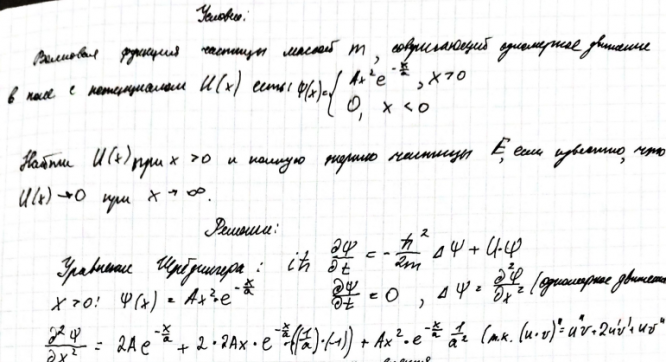 Условие:
Волновая функция частицы массой m, совершающей одномерное движение
в поле с потенциалом U(x) есть: ψ(x) = { Ax² e^(-x/a), x > 0
0, x < 0
Найти U(x) при x > 0 и полную энергию частицы E, если известно, что
U(x) → 0 при x → ∞.
Решение:
Уравнение Шрёдингера: iħ ∂Ψ/∂t = -ħ²/2m ΔΨ + U·Ψ
x > 0: Ψ(x) = Ax²·e^(-x/a) ∂Ψ/∂t = 0, ΔΨ = ∂²Ψ/∂x² (одномерное движение
∂²Ψ/∂x² = 2Ae^(-x/a) + 2·2Ax·e^(-x/a)·((1/a)·(-1)) + Ax²·e^(-x/a) 1/a² (т.к. (u·v)'' = u''v + 2u'v' + uv''